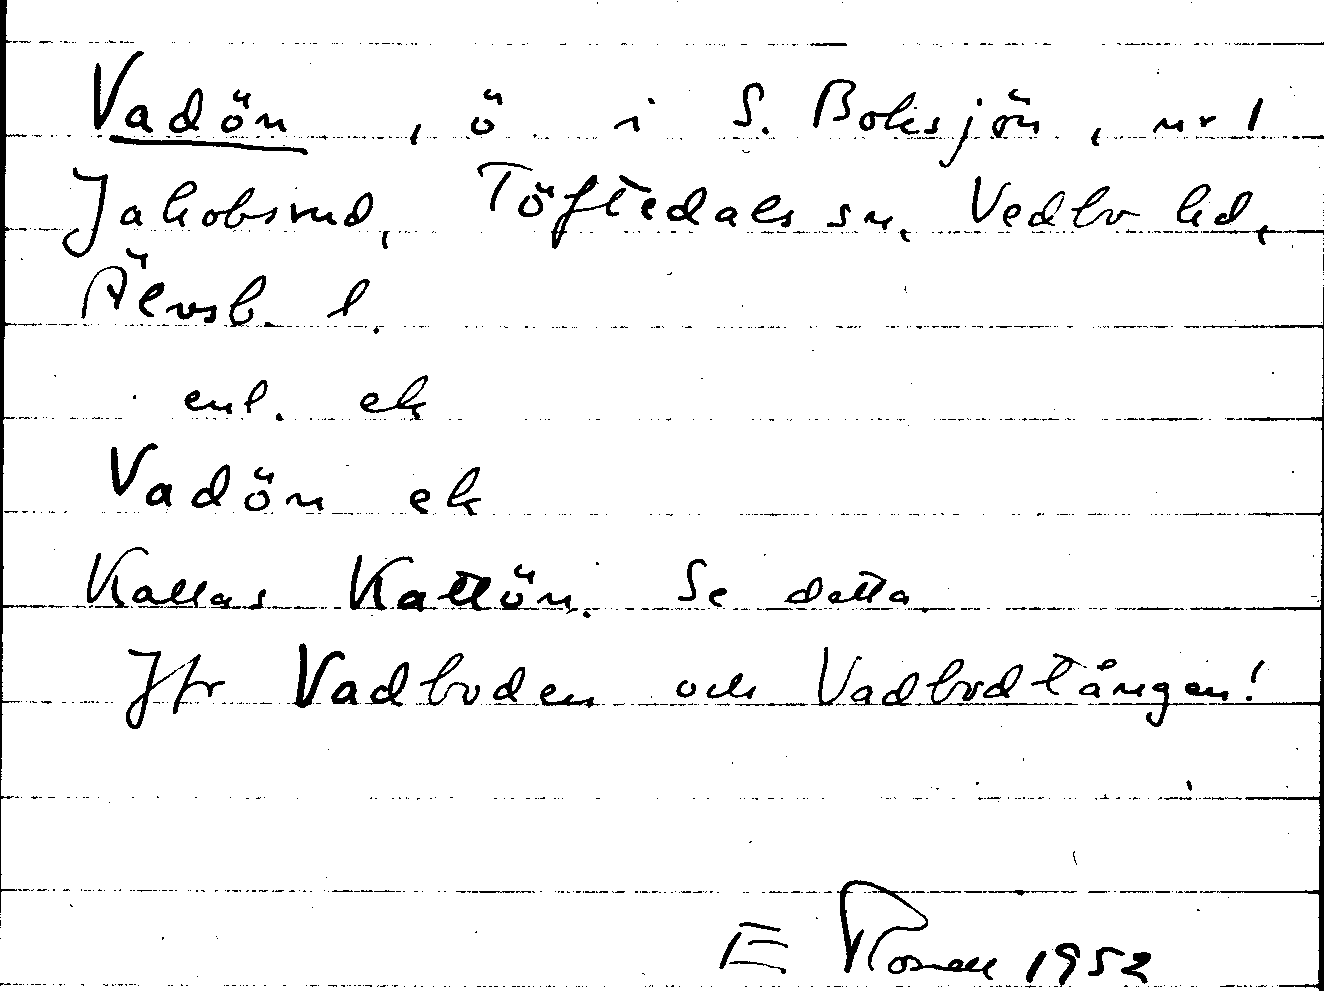 Vadön, ö i S. Boksjön, nr 1
Jakobsrud, Töftedals sn, Vedbo hd,
Älvsb. l.
enl. ek
Vadön ek
Kallas Kattön. Se detta.
Jfr Vadboden och Vadbodtången!
E Rosell 1952